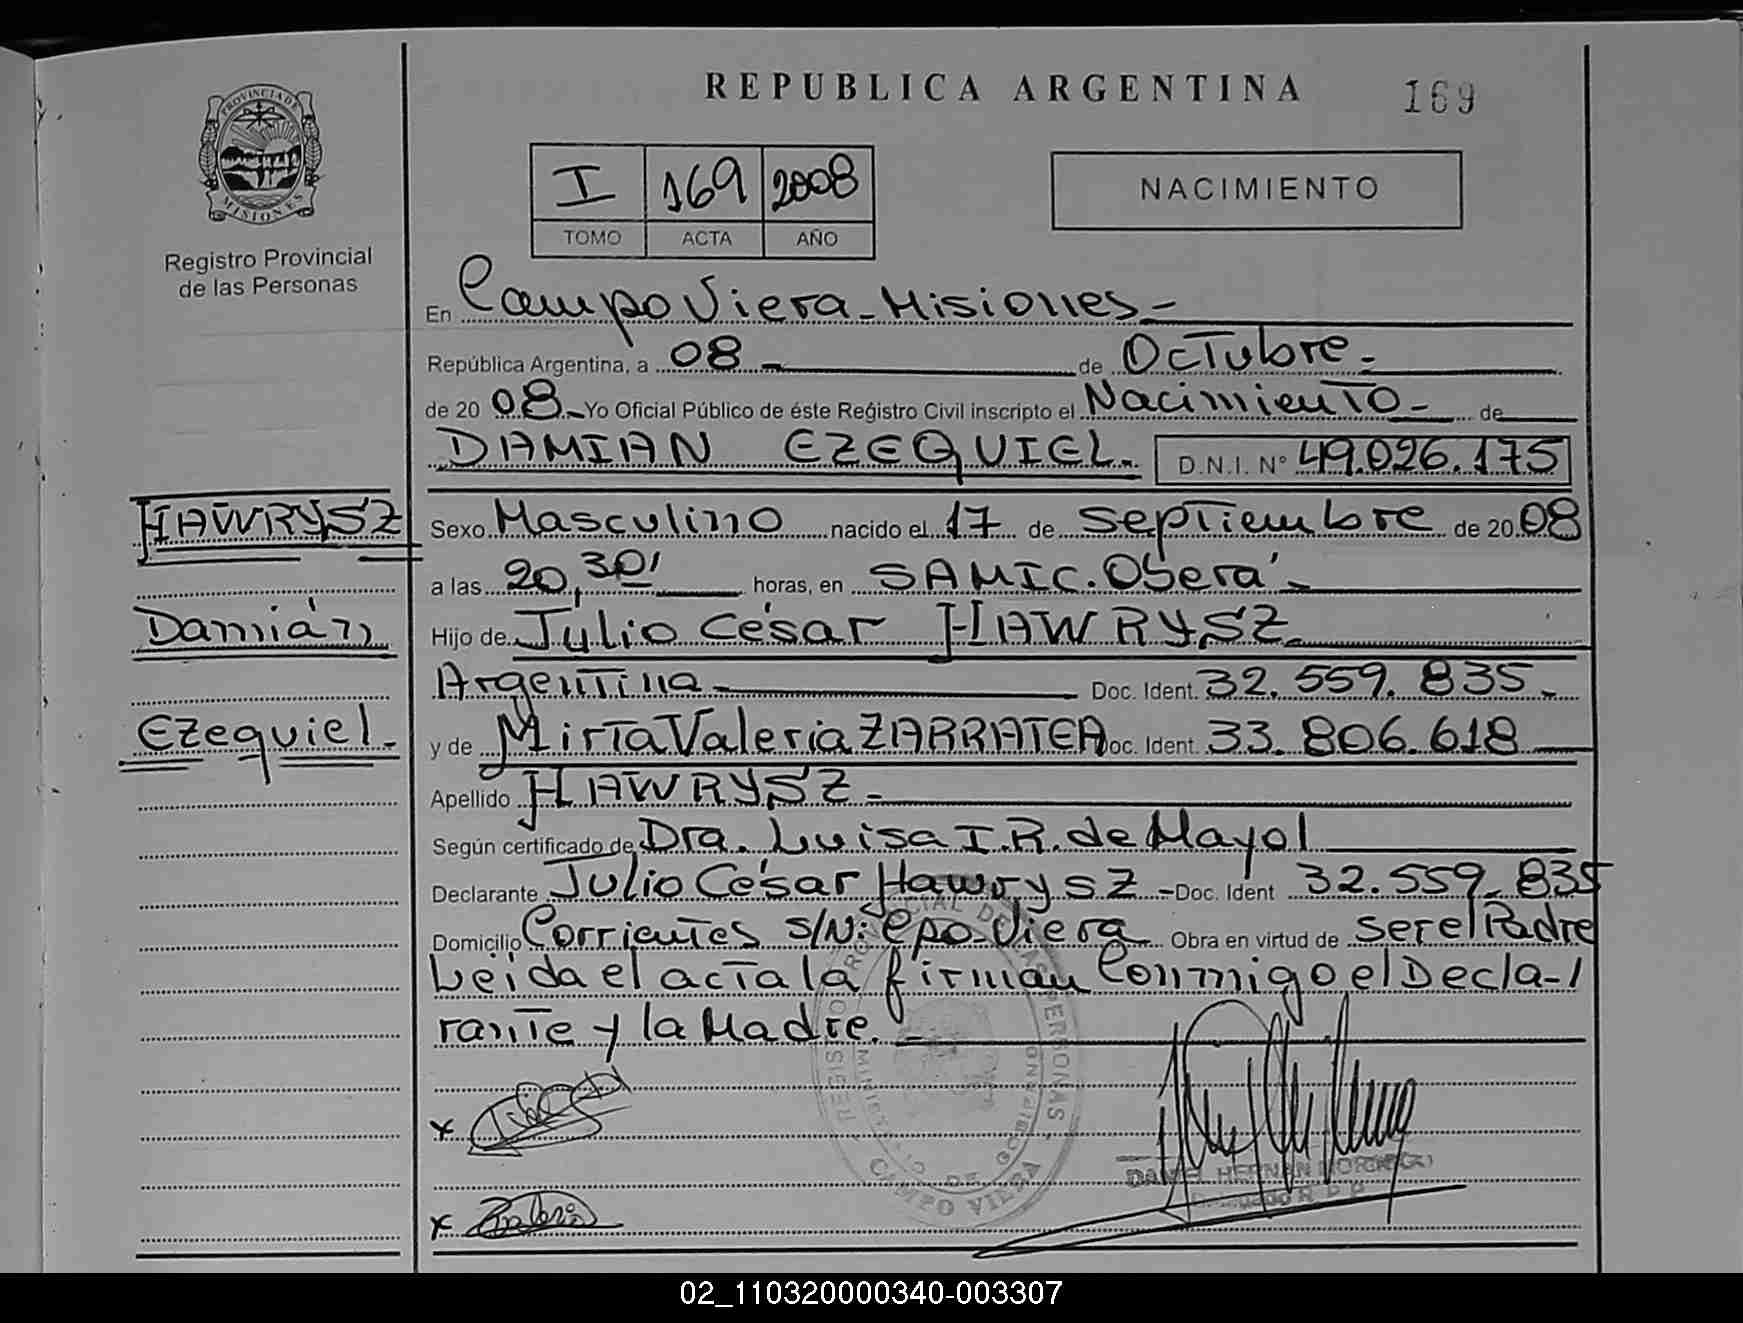 REPUBLICA ARGENTINA
169
PROVINCIA DE
MISIONES
Registro Provincial
de las Personas
I 169 2008
TOMO ACTA AÑO
NACIMIENTO
En Campo Viera - Misiones -
República Argentina, a 08 - de Octubre -
de 20 08 - Yo Oficial Público de éste Registro Civil inscripto el Nacimiento - de
DAMIAN EZEQUIEL - D.N.I. Nº 49.026.175
HAWRYSZ
Damián
Ezequiel -
Sexo Masculino nacido el 17 de Septiembre de 20 08
a las 20,30' horas, en SAMIC. Oberá -
Hijo de Julio César HAWRYSZ -
Argentina - Doc. Ident. 32.559.835 -
y de Mirta Valeria ZARRATEA Doc. Ident. 33.806.618
Apellido HAWRYSZ -
Según certificado de Dra. Luisa I.R. de Mayol
Declarante Julio César Hawrysz - Doc. Ident 32.559.835
Domicilio Corrientes S/Nº Cpo. Viera Obra en virtud de ser el Padre
Leida el acta la firman Conmigo el Decla-
rante y la Madre. -
REGISTRO PROVINCIAL DE LAS PERSONAS
MINISTERIO DE GOBIERNO
CAMPO VIERA
x
x Valeria
DANIEL HERNAN
Delegado R.P.P.
02_110320000340-003307